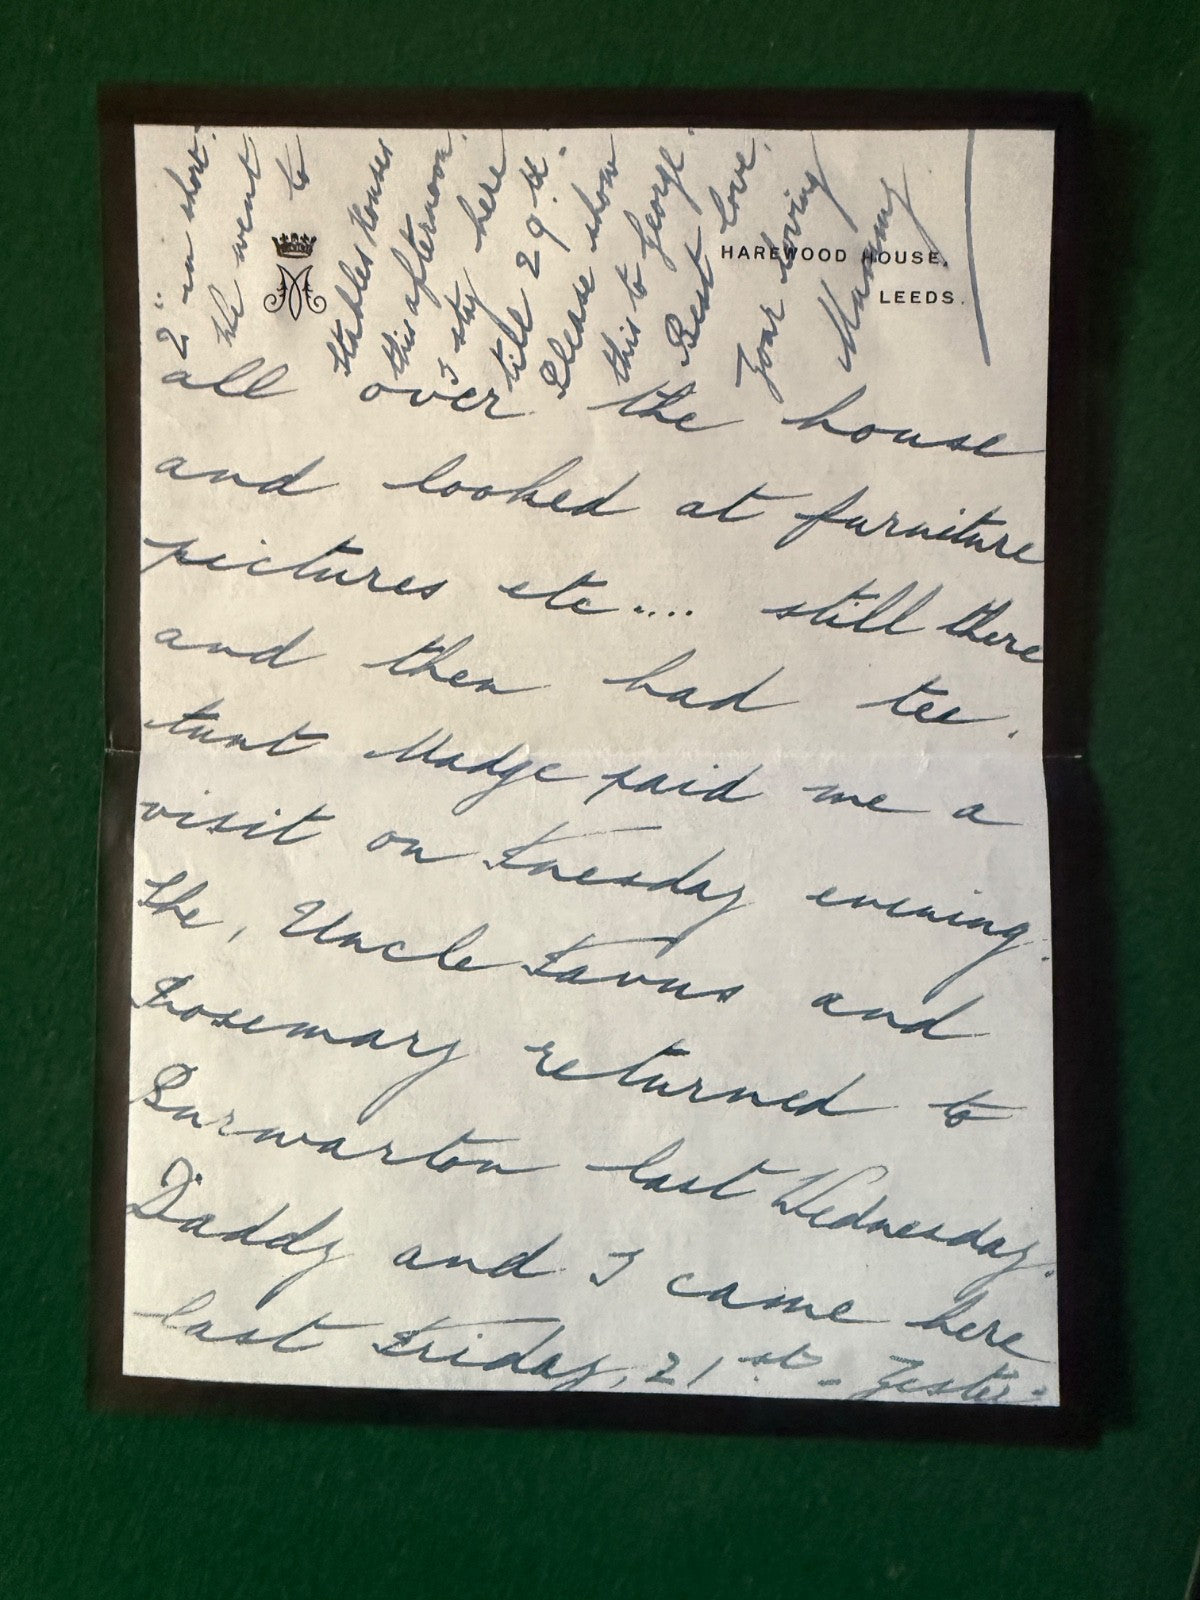 HAREWOOD HOUSE,
LEEDS.
all over the house
and looked at furniture
pictures etc.... still there
and then had tee.
Aunt Madge paid me a
visit on Tuesday evening.
She, Uncle and
Rosemary returned to
Burwarton last Wednesday.
Daddy and I came here
last Friday, 21st - Yester-
2" in short.
We went
to
Stables Houses
this afternoon.
I stay here
till 29th.
Please show
this to George.
Best love,
Your loving
Mammy